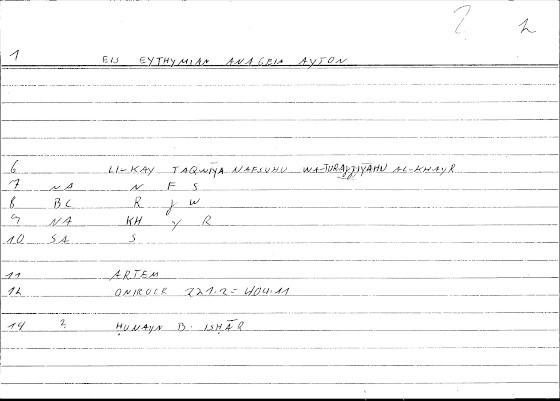 2 h
1 EIS EYTHYMIAN ANAGEIN AYTON
6 LI-KAY TAQWIYA NAFSUHU WA-TURAJJIYAHU AL-KHAYR
7 NA N F S
8 BC R J W
9 NA KH Y R
10 SA S
11 ARTEM
12 ONIROCR 221.2 = 404.11
14 2 ḤUNAYN B. ISḤĀQ